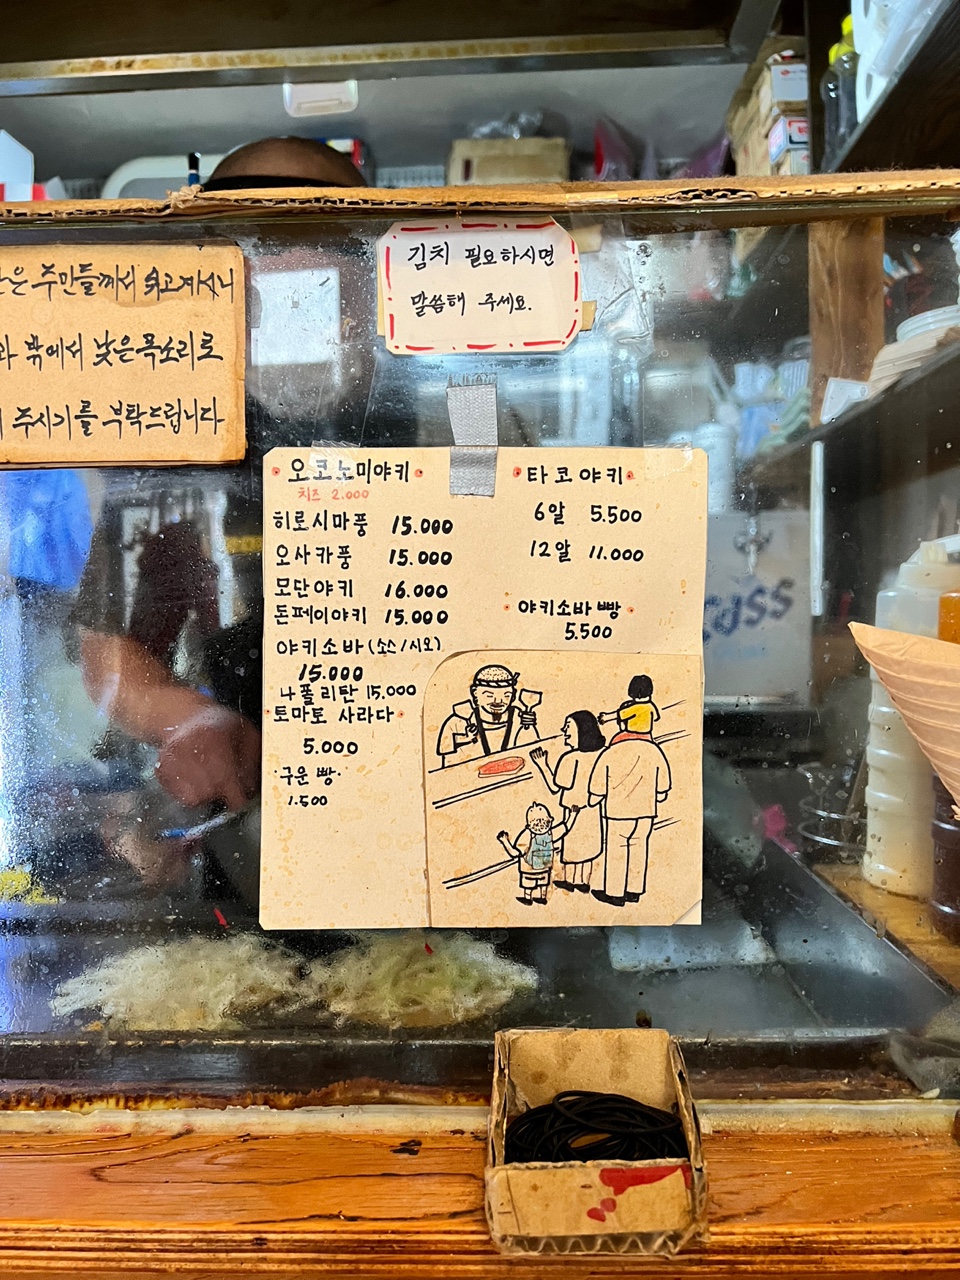 은 주민들께서 쉬고계시니
밖에서 낮은목소리로
주시기를 부탁드립니다
김치 필요하시면
말씀해 주세요.
오코노미야키
치즈 2.000
히로시마풍 15.000
오사카풍 15.000
모단야키 16.000
돈페이야키 15.000
야키소바 (소스/시오)
15.000
나폴리탄 15.000
토마토 사라다
5.000
구운 빵
1.500
타코야키
6알 5.500
12알 11.000
야키소바빵
5.500